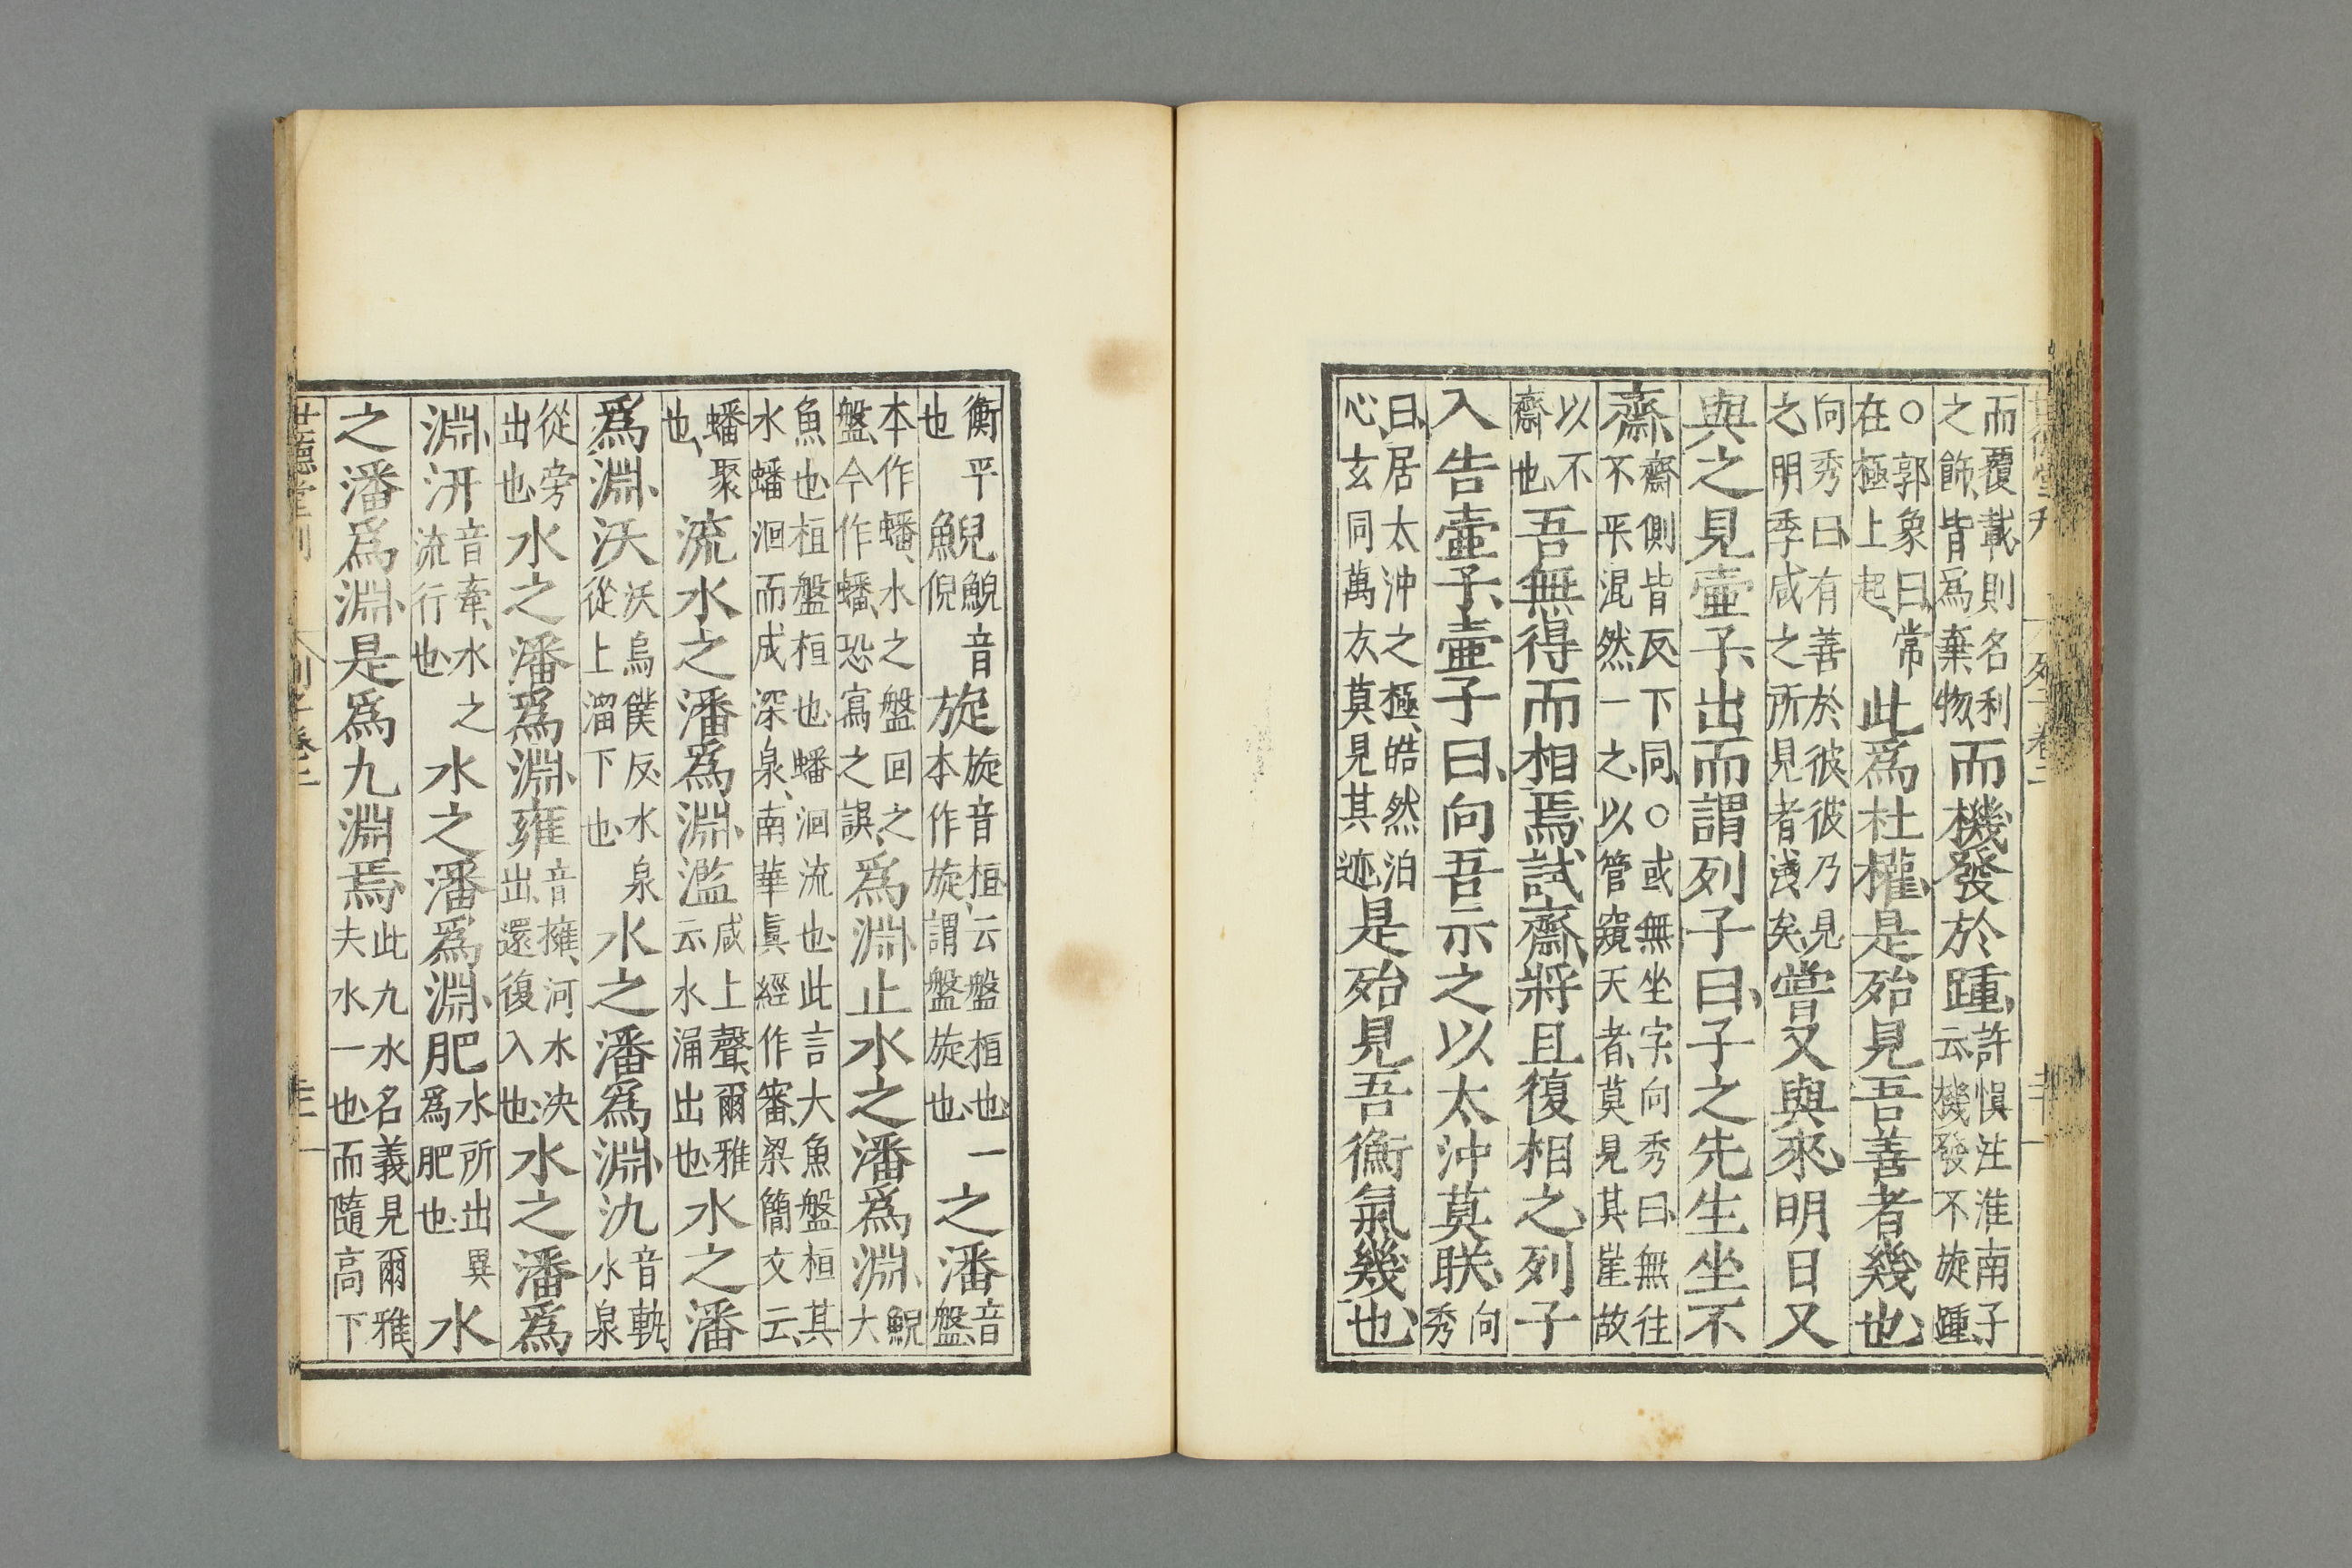 而覆載則名利之飾、皆爲棄物、而機發於踵、許慎注淮南子云、機發不旋踵、
○郭象曰、常在極上起、此爲杜權、是殆見吾善者幾也、
向秀曰、有善於彼彼乃見之、明季咸之所見者淺矣、嘗又與來、明日又
與之見壷子、出而謂列子曰、子之先生坐不
齋、齋側皆反下同、○或無坐字、向秀曰、無往不平、混然一之、以管窺天者、莫見其崖、故
以不齋也、吾無得而相焉、試齋、將且復相之、列子
入告壷子、壷子曰、向吾示之以太沖莫眹、向秀
曰、居太沖之極、皓然泊心、玄同萬方、莫見其迹、是殆見吾衡氣幾也、
衡平也鯢鯢音倪旋旋音桓、云盤桓也、一本作旋、謂盤旋也、之潘音盤、
本作蟠、水之盤回之盤、今作蟠、恐寫之誤、爲淵止水之潘爲淵、鯢大
魚也、桓盤桓也、蟠洄流也、此言大魚盤桓其水蟠洄而成深泉、南華眞經作審、梁簡文云、
蟠聚也、流水之潘爲淵、濫咸上聲、爾雅云水涌出也、水之潘
爲淵、沃沃烏僕反、水泉從上溜下也、水之潘爲淵氿音軌水泉
從旁出也、水之潘爲淵、雍音擁、河水決出、還復入也、水之潘爲
淵、汧音牽、水之流行也、水之潘爲淵、肥水所出異爲肥也、水
之潘爲淵、是爲九淵焉、此九水名義見爾雅、夫水一也、而隨高下
世德堂刊 列子卷二